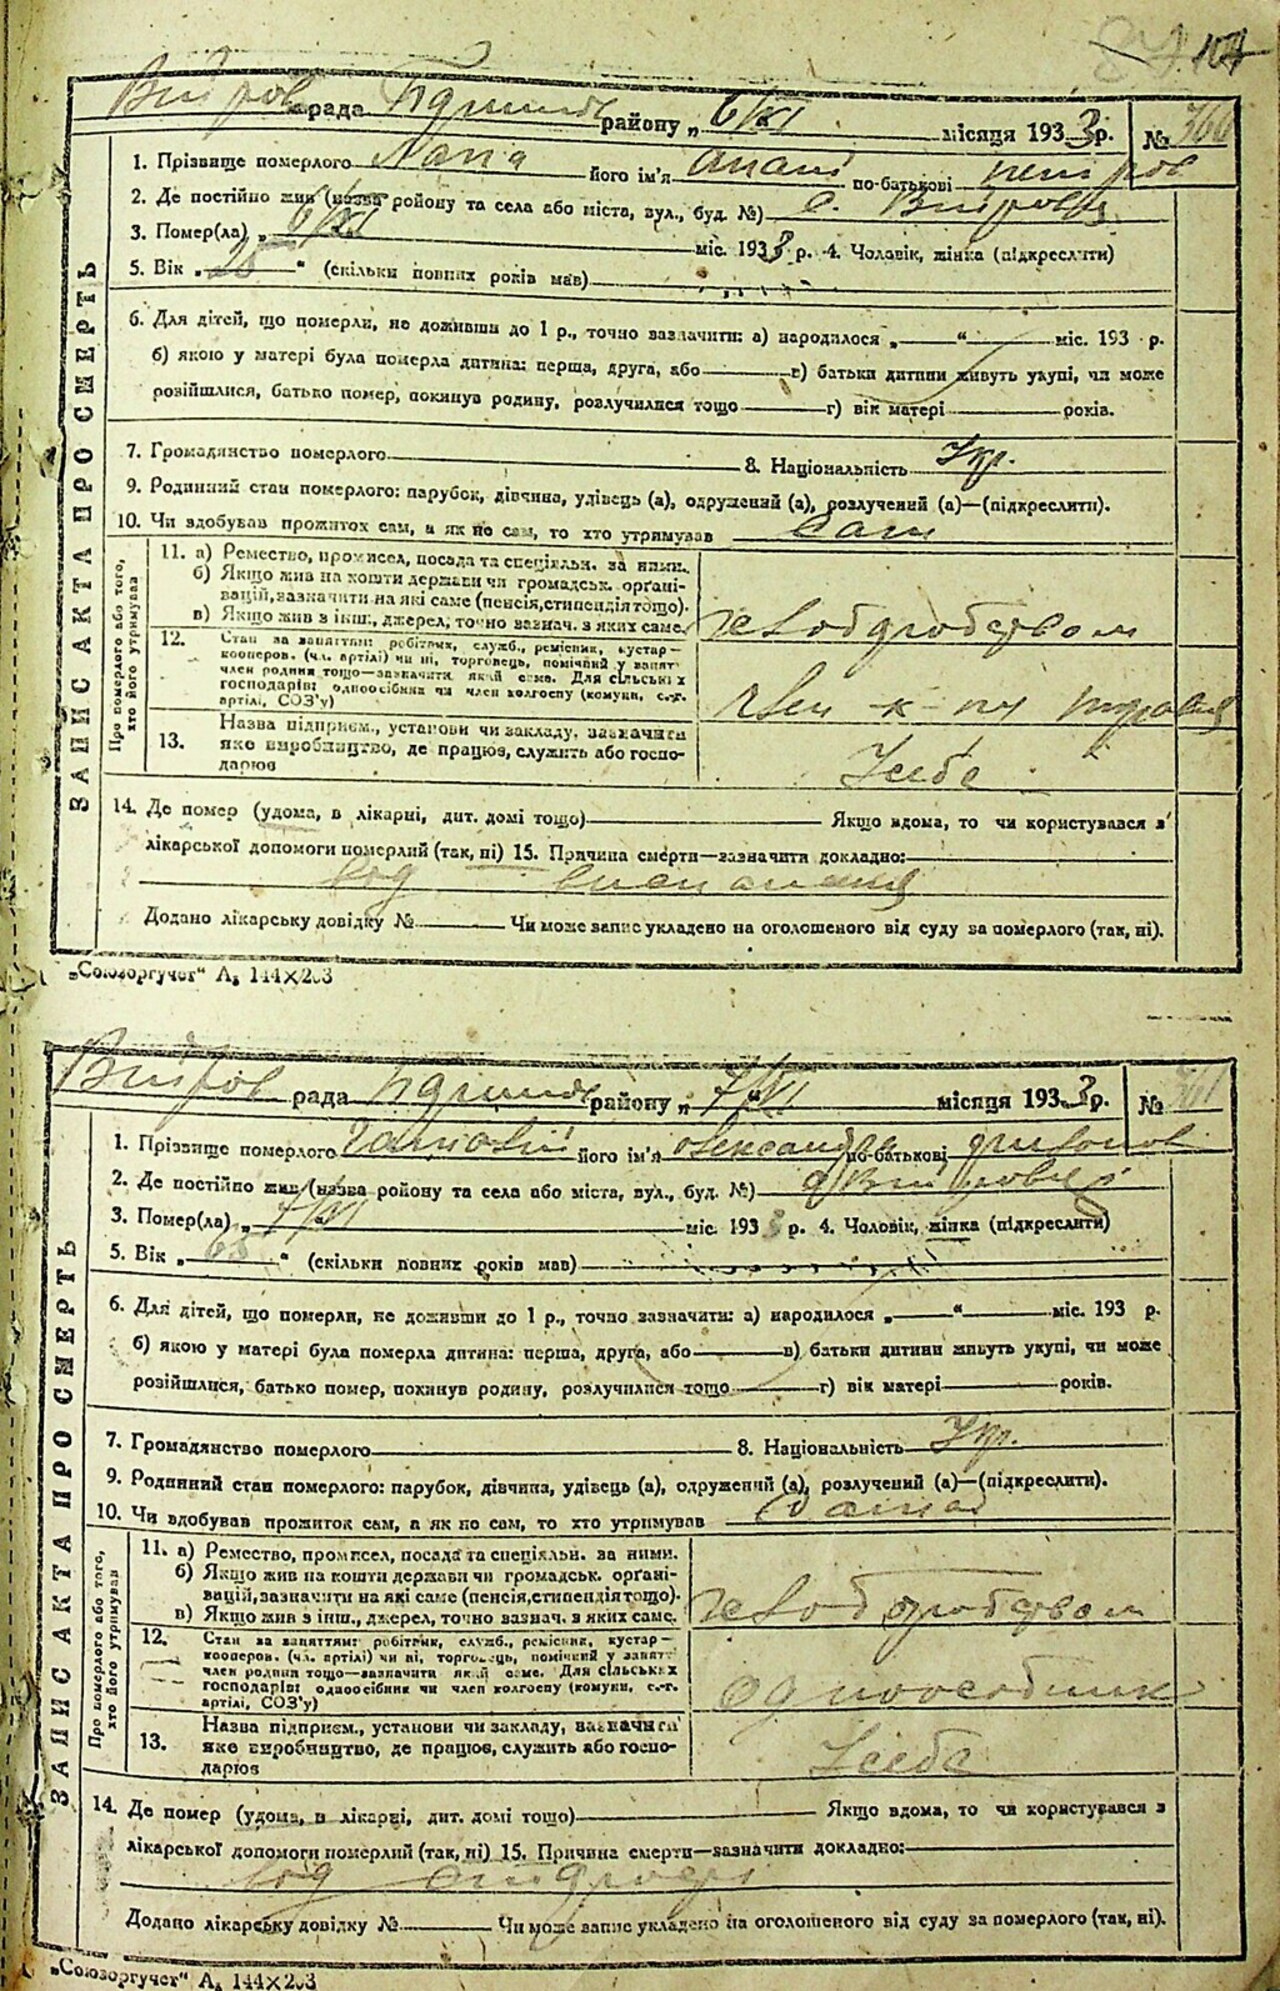 104
рада району „ 6/XI місяця 1933 р. № 360
1. Прізвище померлого його ім'я по-батькові
2. Де постійно жив (назва району та села або міста, вул., буд. №) с.
3. Помер(ла) „ 6/XI міс. 1933 р. 4. Чоловік, жінка (підкреслити)
5. Вік „ “ (скільки повних років мав)
6. Для дітей, що померли, не доживши до 1 р., точно зазначити: а) народилося „ “ міс. 193 р.
б) якою у матері була померла дитина: перша, друга, або в) батьки дитини живуть укупі, чи може
розійшлися, батько помер, покинув родину, розлучилися тощо г) вік матері років.
7. Громадянство померлого 8. Національність Укр.
9. Родинний стан померлого: парубок, дівчина, удівець (а), одружений (а), розлучений (а)—(підкреслити).
10. Чи здобував прожиток сам, а як не сам, то хто утримував Сам
ЗАПИС АКТА ПРО СМЕРТЬ
Про померлого або того, хто його утримував
11. а) Ремество, промисел, посада та спеціяльн. за ними.
б) Якщо жив на кошти держави чи громадськ. органі-
зацій, зазначити на які саме (пенсія, стипендія тощо).
в) Якщо жив з інш., джерел, точно зазнач. з яких саме.
12. Стан за заняттям: робітник, служб., ремісник, кустар—
кооперов. (чл. артілі) чи ні, торговець, помічний у занят.
член родини тощо—зазначити який саме. Для сільських
господарів: одноосібник чи член колгоспу (комуни, с.-г.
артілі, СОЗ'у)
13. Назва підприєм., установи чи закладу, зазначити
яке виробництво, де працює, служить або госпо-
дарює
14. Де помер (удома, в лікарні, дит. домі тощо) Якщо вдома, то чи користувався з
лікарської допомоги померлий (так, ні) 15. Причина смерти—зазначити докладно:
од
Додано лікарську довідку № Чи може запис укладено на оголошеного від суду за померлого (так, ні).
„Союзоргучет“ А₅ 144×203
рада району „ 7/XI місяця 1933 р. № 361
1. Прізвище померлого його ім'я по-батькові
2. Де постійно жив (назва району та села або міста, вул., буд. №)
3. Помер(ла) „ 7/XI міс. 1933 р. 4. Чоловік, жінка (підкреслити)
5. Вік „ 65 “ (скільки повних років мав)
6. Для дітей, що померли, не доживши до 1 р., точно зазначити: а) народилося „ “ міс. 193 р.
б) якою у матері була померла дитина: перша, друга, або в) батьки дитини живуть укупі, чи може
розійшлися, батько помер, покинув родину, розлучилися тощо г) вік матері років.
7. Громадянство померлого 8. Національність Укр.
9. Родинний стан померлого: парубок, дівчина, удівець (а), одружений (а), розлучений (а)—(підкреслити).
10. Чи здобував прожиток сам, а як не сам, то хто утримував Сама
ЗАПИС АКТА ПРО СМЕРТЬ
Про померлого або того, хто його утримував
11. а) Ремество, промисел, посада та спеціяльн. за ними.
б) Якщо жив на кошти держави чи громадськ. органі-
зацій, зазначити на які саме (пенсія, стипендія тощо).
в) Якщо жив з інш., джерел, точно зазнач. з яких саме.
12. Стан за заняттям: робітник, служб., ремісник, кустар—
кооперов. (чл. артілі) чи ні, торговець, помічний у занят.
член родини тощо—зазначити який саме. Для сільських
господарів: одноосібник чи член колгоспу (комуни, с.-г.
артілі, СОЗ'у)
одноосібник
13. Назва підприєм., установи чи закладу, зазначити
яке виробництво, де працює, служить або госпо-
дарює
14. Де помер (удома, в лікарні, дит. домі тощо) Якщо вдома, то чи користувався з
лікарської допомоги померлий (так, ні) 15. Причина смерти—зазначити докладно:
од
Додано лікарську довідку № Чи може запис укладено на оголошеного від суду за померлого (так, ні).
„Союзоргучет“ А₅ 144×203